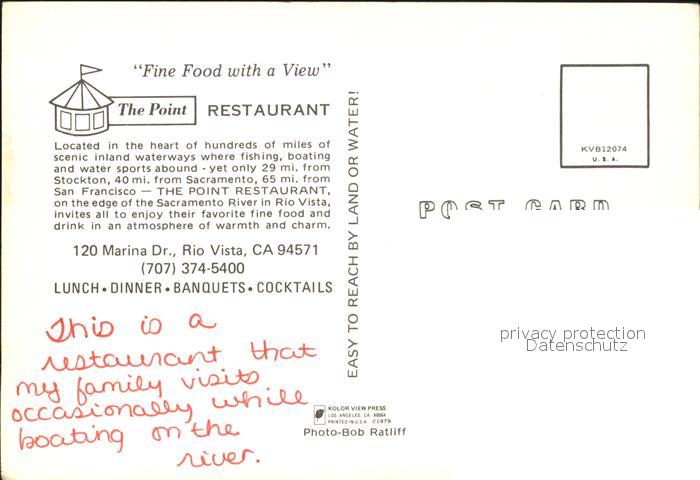 "Fine Food with a View"
The Point RESTAURANT
Located in the heart of hundreds of miles of
scenic inland waterways where fishing, boating
and water sports abound - yet only 29 mi. from
Stockton, 40 mi. from Sacramento, 65 mi. from
San Francisco — THE POINT RESTAURANT,
on the edge of the Sacramento River in Rio Vista,
invites all to enjoy their favorite fine food and
drink in an atmosphere of warmth and charm.
120 Marina Dr., Rio Vista, CA 94571
(707) 374-5400
LUNCH • DINNER • BANQUETS • COCKTAILS
This is a
restaurant that
my family visits
occasionally while
boating on the
river.
EASY TO REACH BY LAND OR WATER!
KOLOR VIEW PRESS
LOS ANGELES, CA. 90064
PRINTED IN U.S.A. ©1979
Photo-Bob Ratliff
KVB12074
U. S. A.
POST CARD
privacy protection
Datenschutz